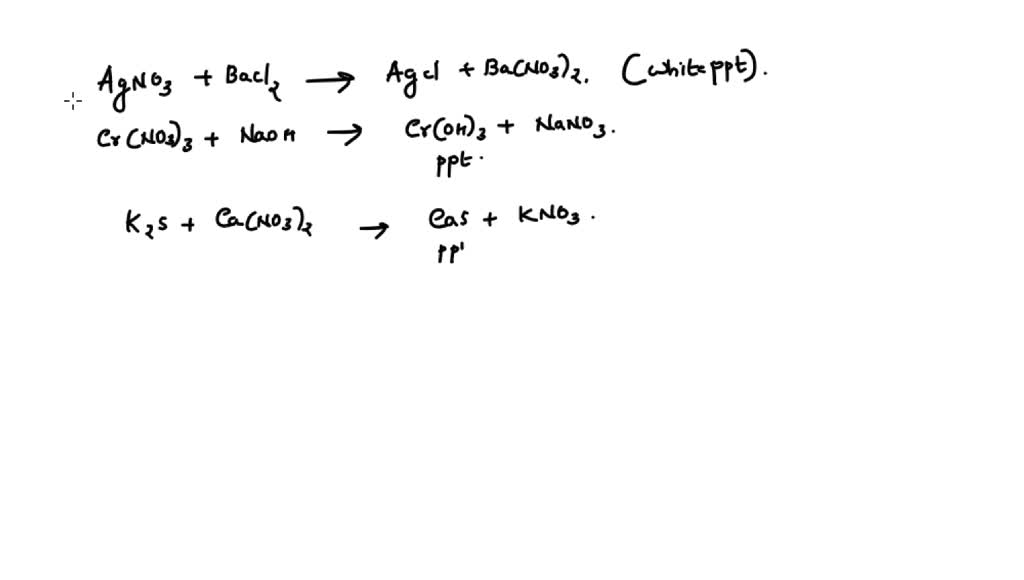 AgNO3 + Bacl2 → Agcl + Ba(NO3)2. (white ppt).
Cr(NO3)3 + NaOH → Cr(OH)3 + NaNO3.
ppt.
K2S + Ca(NO3)2 → CaS + KNO3.
pp'